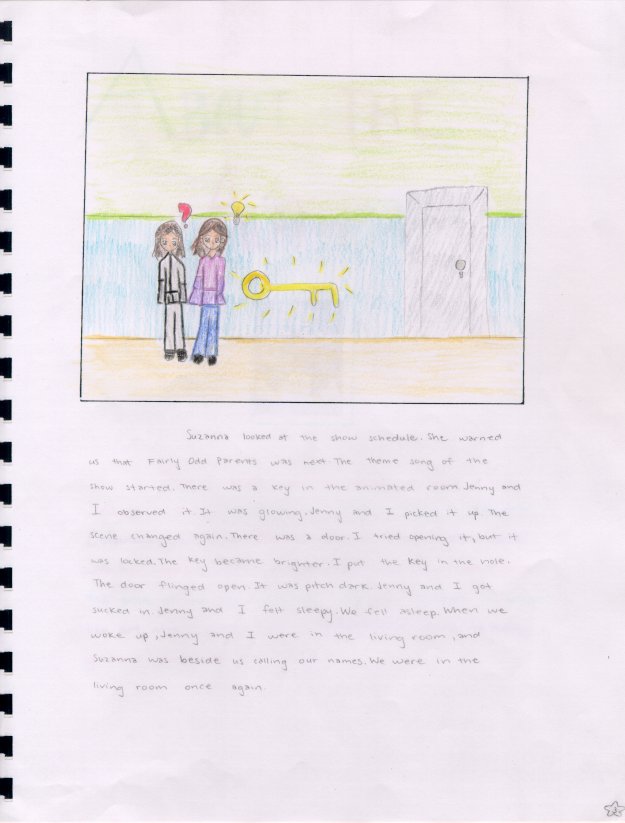 Suzanna looked at the show schedule. She warned
us that Fairly Odd Parents was next. The theme song of the
show started. There was a key in the animated room. Jenny and
I observed it. It was glowing. Jenny and I picked it up. The
scene changed again. There was a door. I tried opening it, but it
was locked. The key became brighter. I put the key in the hole.
The door flinged open. It was pitch dark. Jenny and I got
sucked in. Jenny and I felt sleepy. We fell asleep. When we
woke up, Jenny and I were in the living room, and
Suzanna was beside us calling our names. We were in the
living room once again.